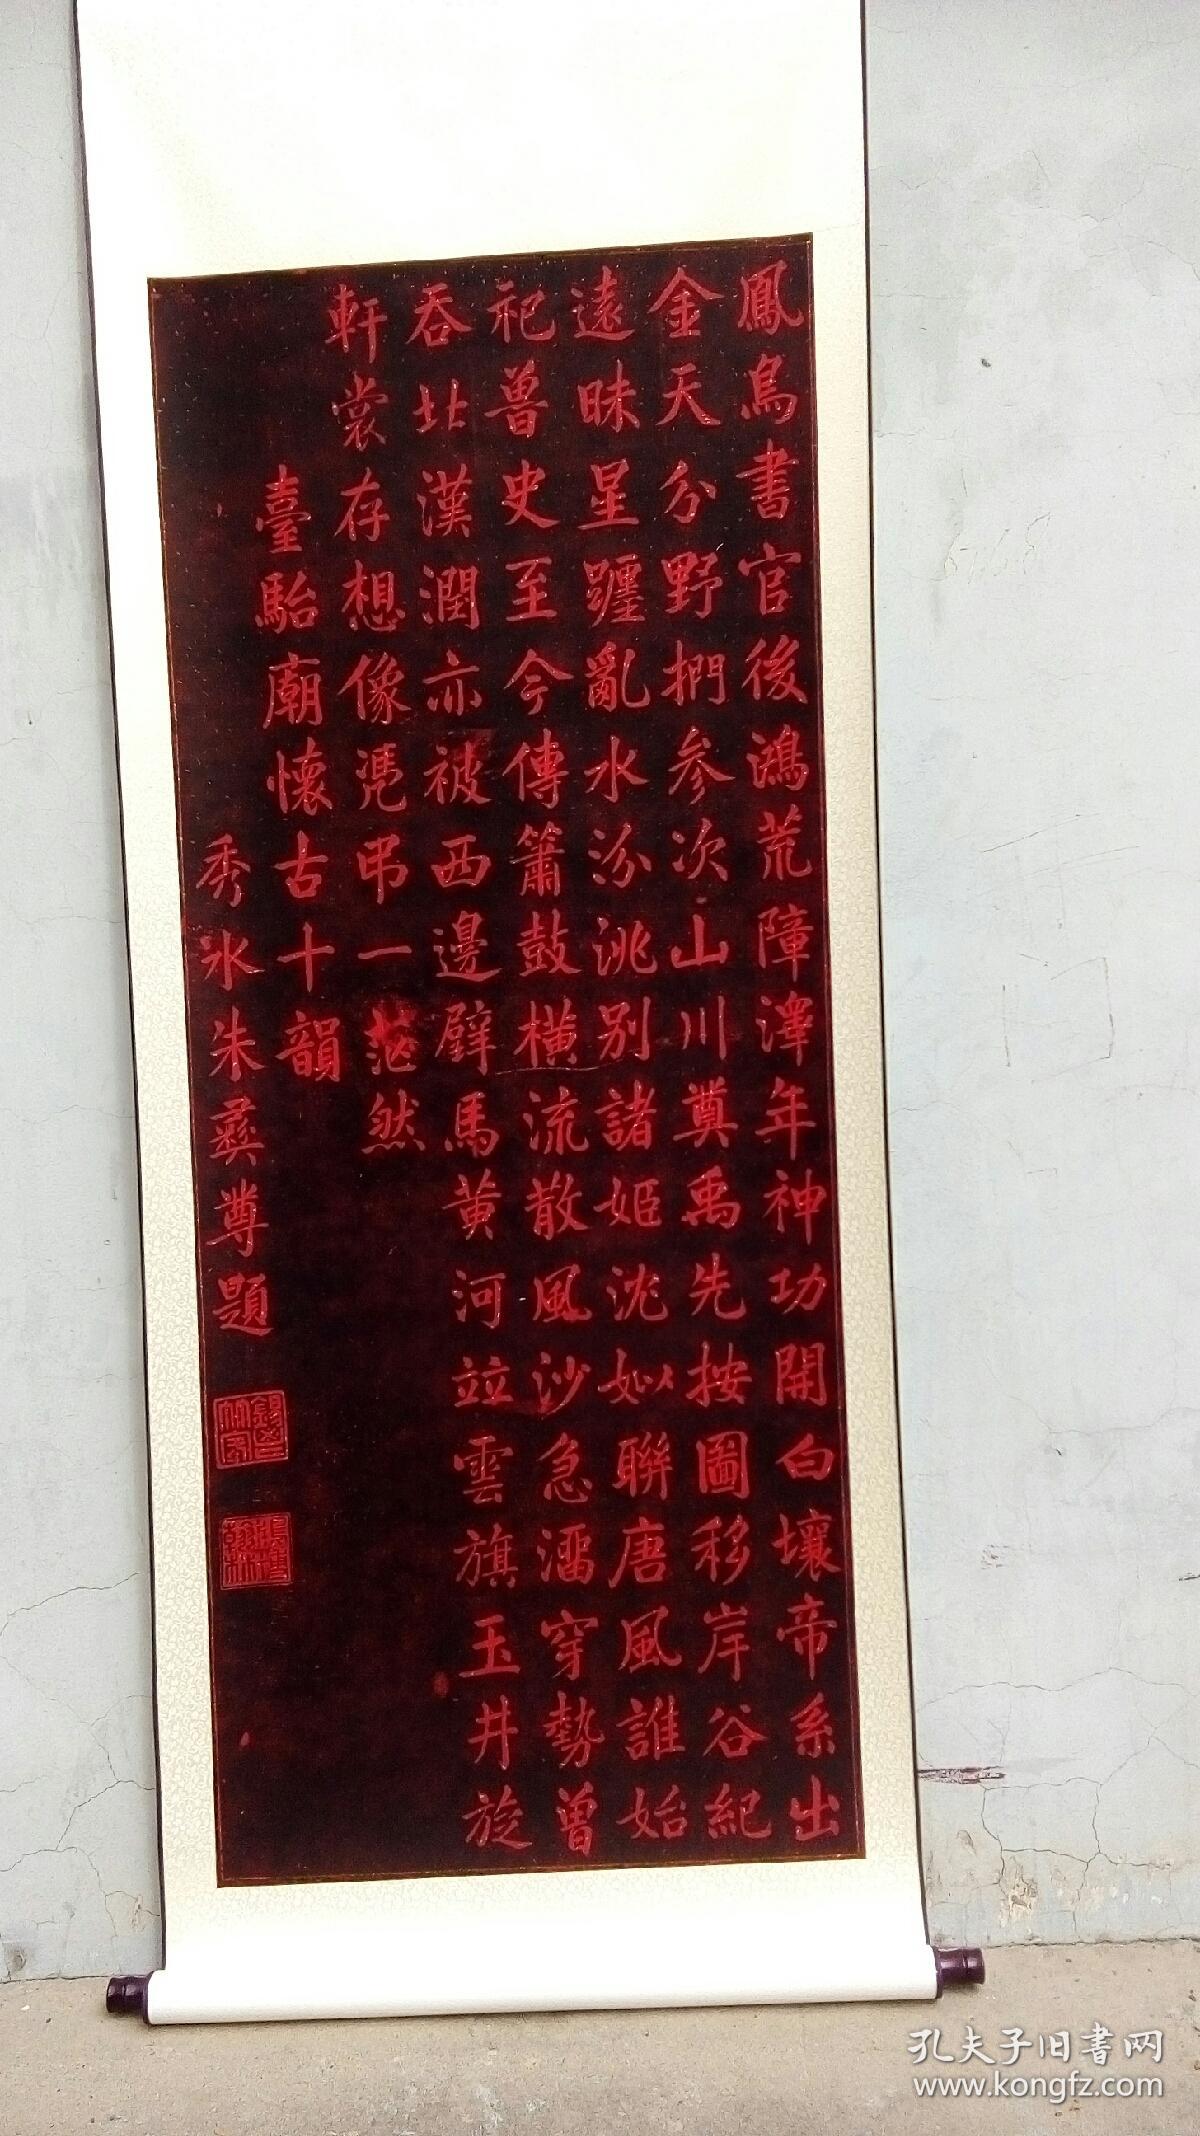 鳳鳥書官後鴻荒障澤年神功開白壤帝系出
金天分野捫参次山川奠禹先按圖移岸谷紀
遠昧星躔亂水汾洮別諸姬沈姒聯唐風誰始
祀魯史至今傳簫鼓橫流散風沙急濡穿勢曾
吞北漢潤亦被西邊壁馬黄河竝雲旗玉井旋
軒裳存想像凴弔一茫然
臺駘廟懷古十韻
秀水朱彝尊題
孔夫子旧书网
www.kongfz.com